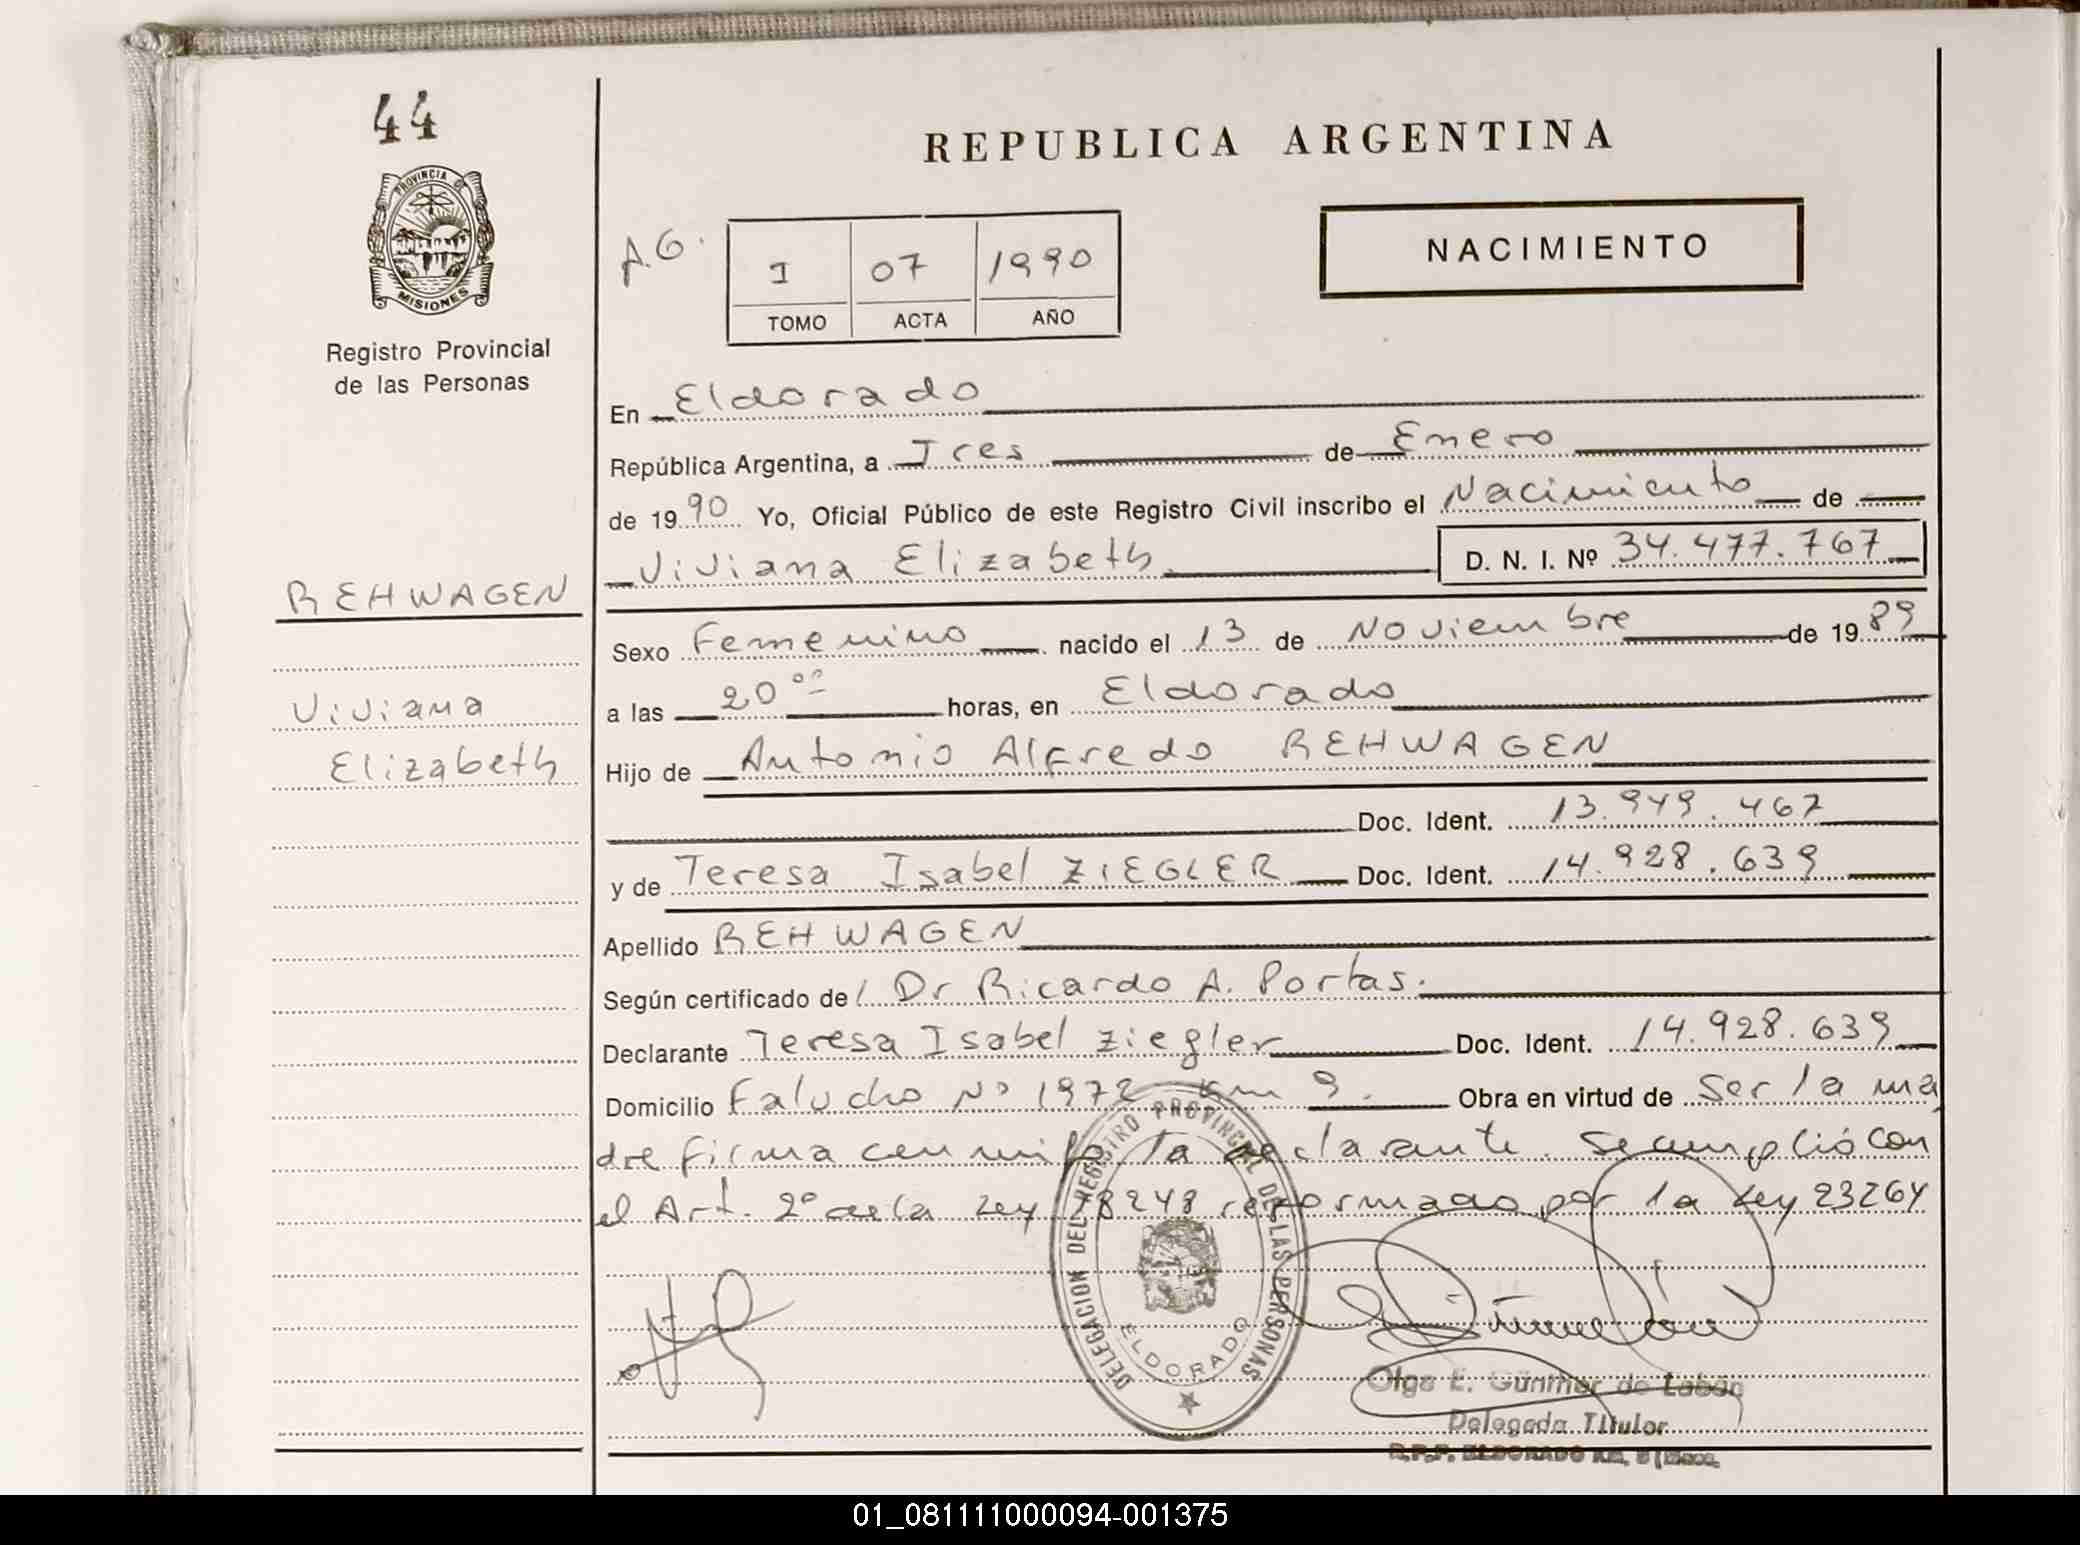 44
PROVINCIA DE
MISIONES
Registro Provincial
de las Personas
REHWAGEN
Viviana
Elizabeth
REPUBLICA ARGENTINA
A.G.
I 07 1990
TOMO ACTA AÑO
NACIMIENTO
En Eldorado
República Argentina, a Tres de Enero
de 1990 Yo, Oficial Público de este Registro Civil inscribo el Nacimiento de
Viviana Elizabeth. D. N. I. Nº 34.477.767
Sexo Femenino nacido el 13 de Noviembre de 1989
a las 20 ºº horas, en Eldorado
Hijo de Antonio Alfredo REHWAGEN
Doc. Ident. 13.949.467
y de Teresa Isabel ZIEGLER Doc. Ident. 14.928.639
Apellido REHWAGEN
Según certificado de Dr Ricardo A. Portas.
Declarante Teresa Isabel Ziegler Doc. Ident. 14.928.639
Domicilio Falucho Nº 1972 Km 9. Obra en virtud de Ser la ma
dre firma con migo la declarante. Se cumplió con
el Art. 2º de la Ley 18248 reformado por la Ley 23264
DELEGACION DEL REGISTRO PROVINCIAL DE LAS PERSONAS
ELDORADO
Olga E. Günther de Labán
Delegada Titular
R.P.P. ELDORADO KM. 9 (Mnes.
01_081111000094-001375